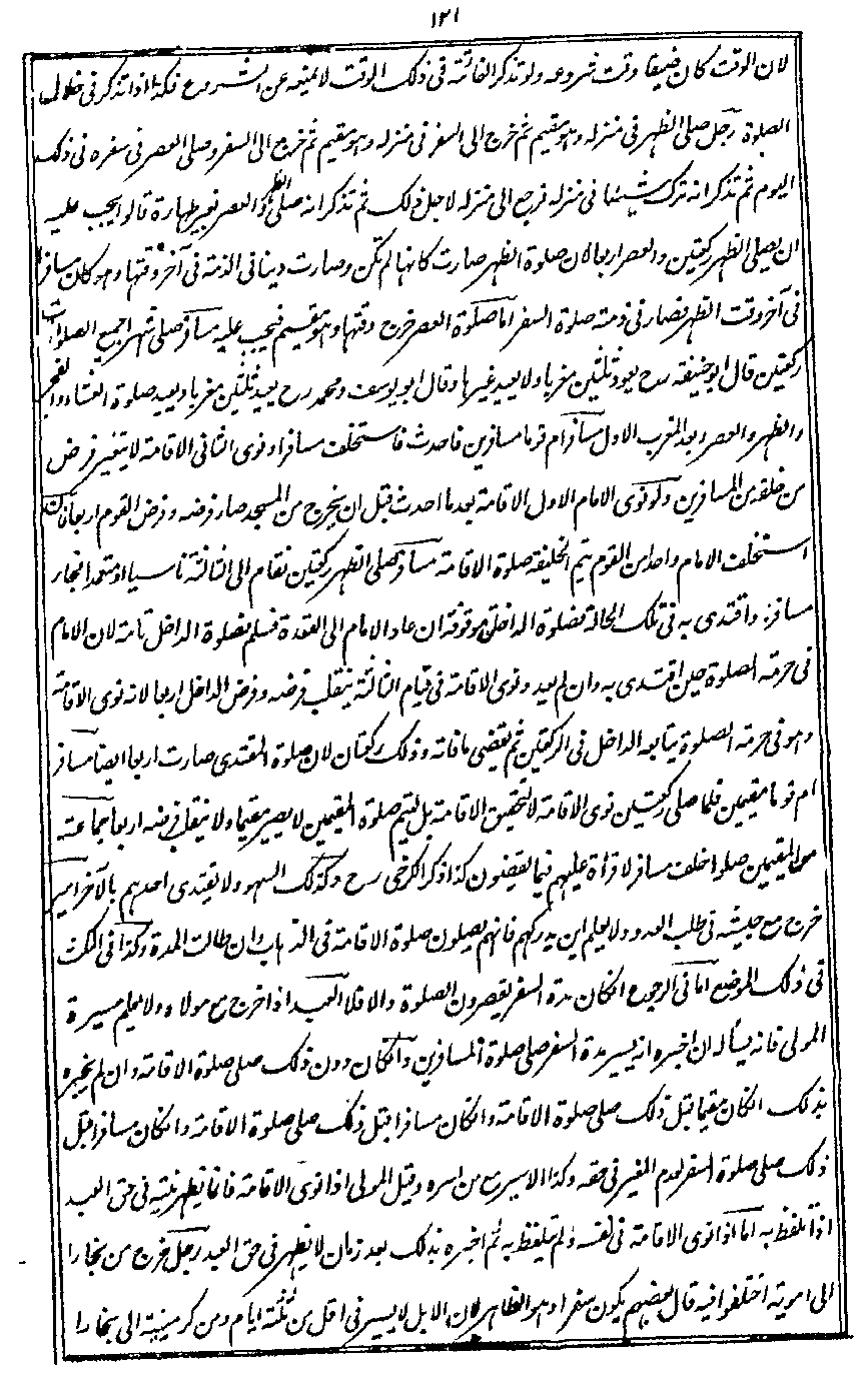 ١٢١
لان الوقت كان ضيقا وقت شروعه ولو تذكر الفائتة فى ذلك الوقت لا يمنعه عن الشروع فكذا اذا تذكر فى خلال
الصلوة رجل صلى الظهر فى منزله وهو مقيم ثم خرج الى السفر فى منزله وهو مقيم ثم خرج الى السفر وصلى العصر فى سفره فى ذلك
اليوم ثم تذكر انه ترك شيئا فى منزله فرجع الى منزله لاجل ذلك ثم تذكر انه صلى الظهر والعصر بغير طهارة قالوا يجب عليه
ان يصلى الظهر ركعتين والعصر اربعا لان صلوة الظهر صارت كانها لم تكن وصارت دينا فى الذمة فى آخر وقتها وهو كان مسافرا
فى آخر وقت الظهر فصار فى ذمته صلوة السفر اما صلوة العصر خرج وقتها وهو مقيم فيجب عليه مسافر صلى شهرا جميع الصلوات
ركعتين قال ابو حنيفة رح يعيد ثلثين مغربا ولا يعيد غيرها وقال ابو يوسف ومحمد رح يعيد ثلثين مغربا ويعيد صلوة العشاء والفجر
والظهر والعصر بعد المغرب الاول مسافر ام قوما مسافرين فاحدث فاستخلف مسافرا ونوى الثانى الاقامة لا يتغير فرض
من خلفه من المسافرين ولو نوى الامام الاول الاقامة بعد ما احدث قبل ان يخرج من المسجد صار فرضه وفرض القوم اربعا فان
استخلف الامام واحدا من القوم يتم الخليفة صلوة الاقامة مسافر صلى الظهر ركعتين فقام الى الثالثة ناسيا او متعمدا فجاء
مسافر واقتدى به فى تلك الحالة فصلوة الداخل موقوفة ان عاد الامام الى القعدة فسلم فصلوة الداخل تامة لان الامام
فى حرمة الصلوة حين اقتدى به وان لم يعد ونوى الاقامة فى قيام الثالثة ينقلب فرضه وفرض الداخل اربعا لانه نوى الاقامة
وهو فى حرمة الصلوة يتابعه الداخل فى الركعتين ثم يقضى ما فاته وذلك ركعتان لان صلوة المقتدى صارت اربعا ايضا مسافر
ام قوما مقيمين فلما صلى ركعتين نوى الاقامة لا لتحقيق الاقامة بل ليتم صلوة المقيمين لا يصير مقيما ولا ينقلب فرضه اربعا جماعة
من المقيمين صلوا خلف مسافر لا قراءة عليهم فيما يقضون كذا ذكر الكرخى رح وكذلك السهو ولا يقتدى احدهم بالآخر امير
خرج مع جيشه فى طلب العدو ولا يعلم اين يدركهم فانهم يصلون صلوة الاقامة فى الذهاب وان طالت المدة وكذا فى المكث
فى ذلك الموضع اما فى الرجوع ان كان مدة السفر يقصرون الصلوة والا فلا العبد اذا خرج مع مولاه ولا يعلم مسيرة
المولى فانه يسأله ان اخبره انه يسير مدة السفر صلى صلوة المسافرين وان كان دون ذلك صلى صلوة الاقامة وان لم يخبره
بذلك ان كان مقيما قبل ذلك صلى صلوة الاقامة وان كان مسافرا قبل ذلك صلى صلوة الاقامة وان كان مسافرا قبل
ذلك صلى صلوة السفر لعدم المغير فى حقه وكذا الاسير مع من اسره وقيل المولى اذا نوى الاقامة فانما يظهر نيته فى حق العبد
اذا تلفظ به اما اذا نوى الاقامة فى نفسه ولم يتلفظ به ثم اخبره بذلك بعد زمان لا يظهر فى حق العبد رجل خرج من بخارا
الى امويه اختلفوا فيه قال بعضهم يكون سفرا وهو الظاهر لان الابل لا يسير فى اقل من ثلثة ايام ومن كرمينية الى بخارا